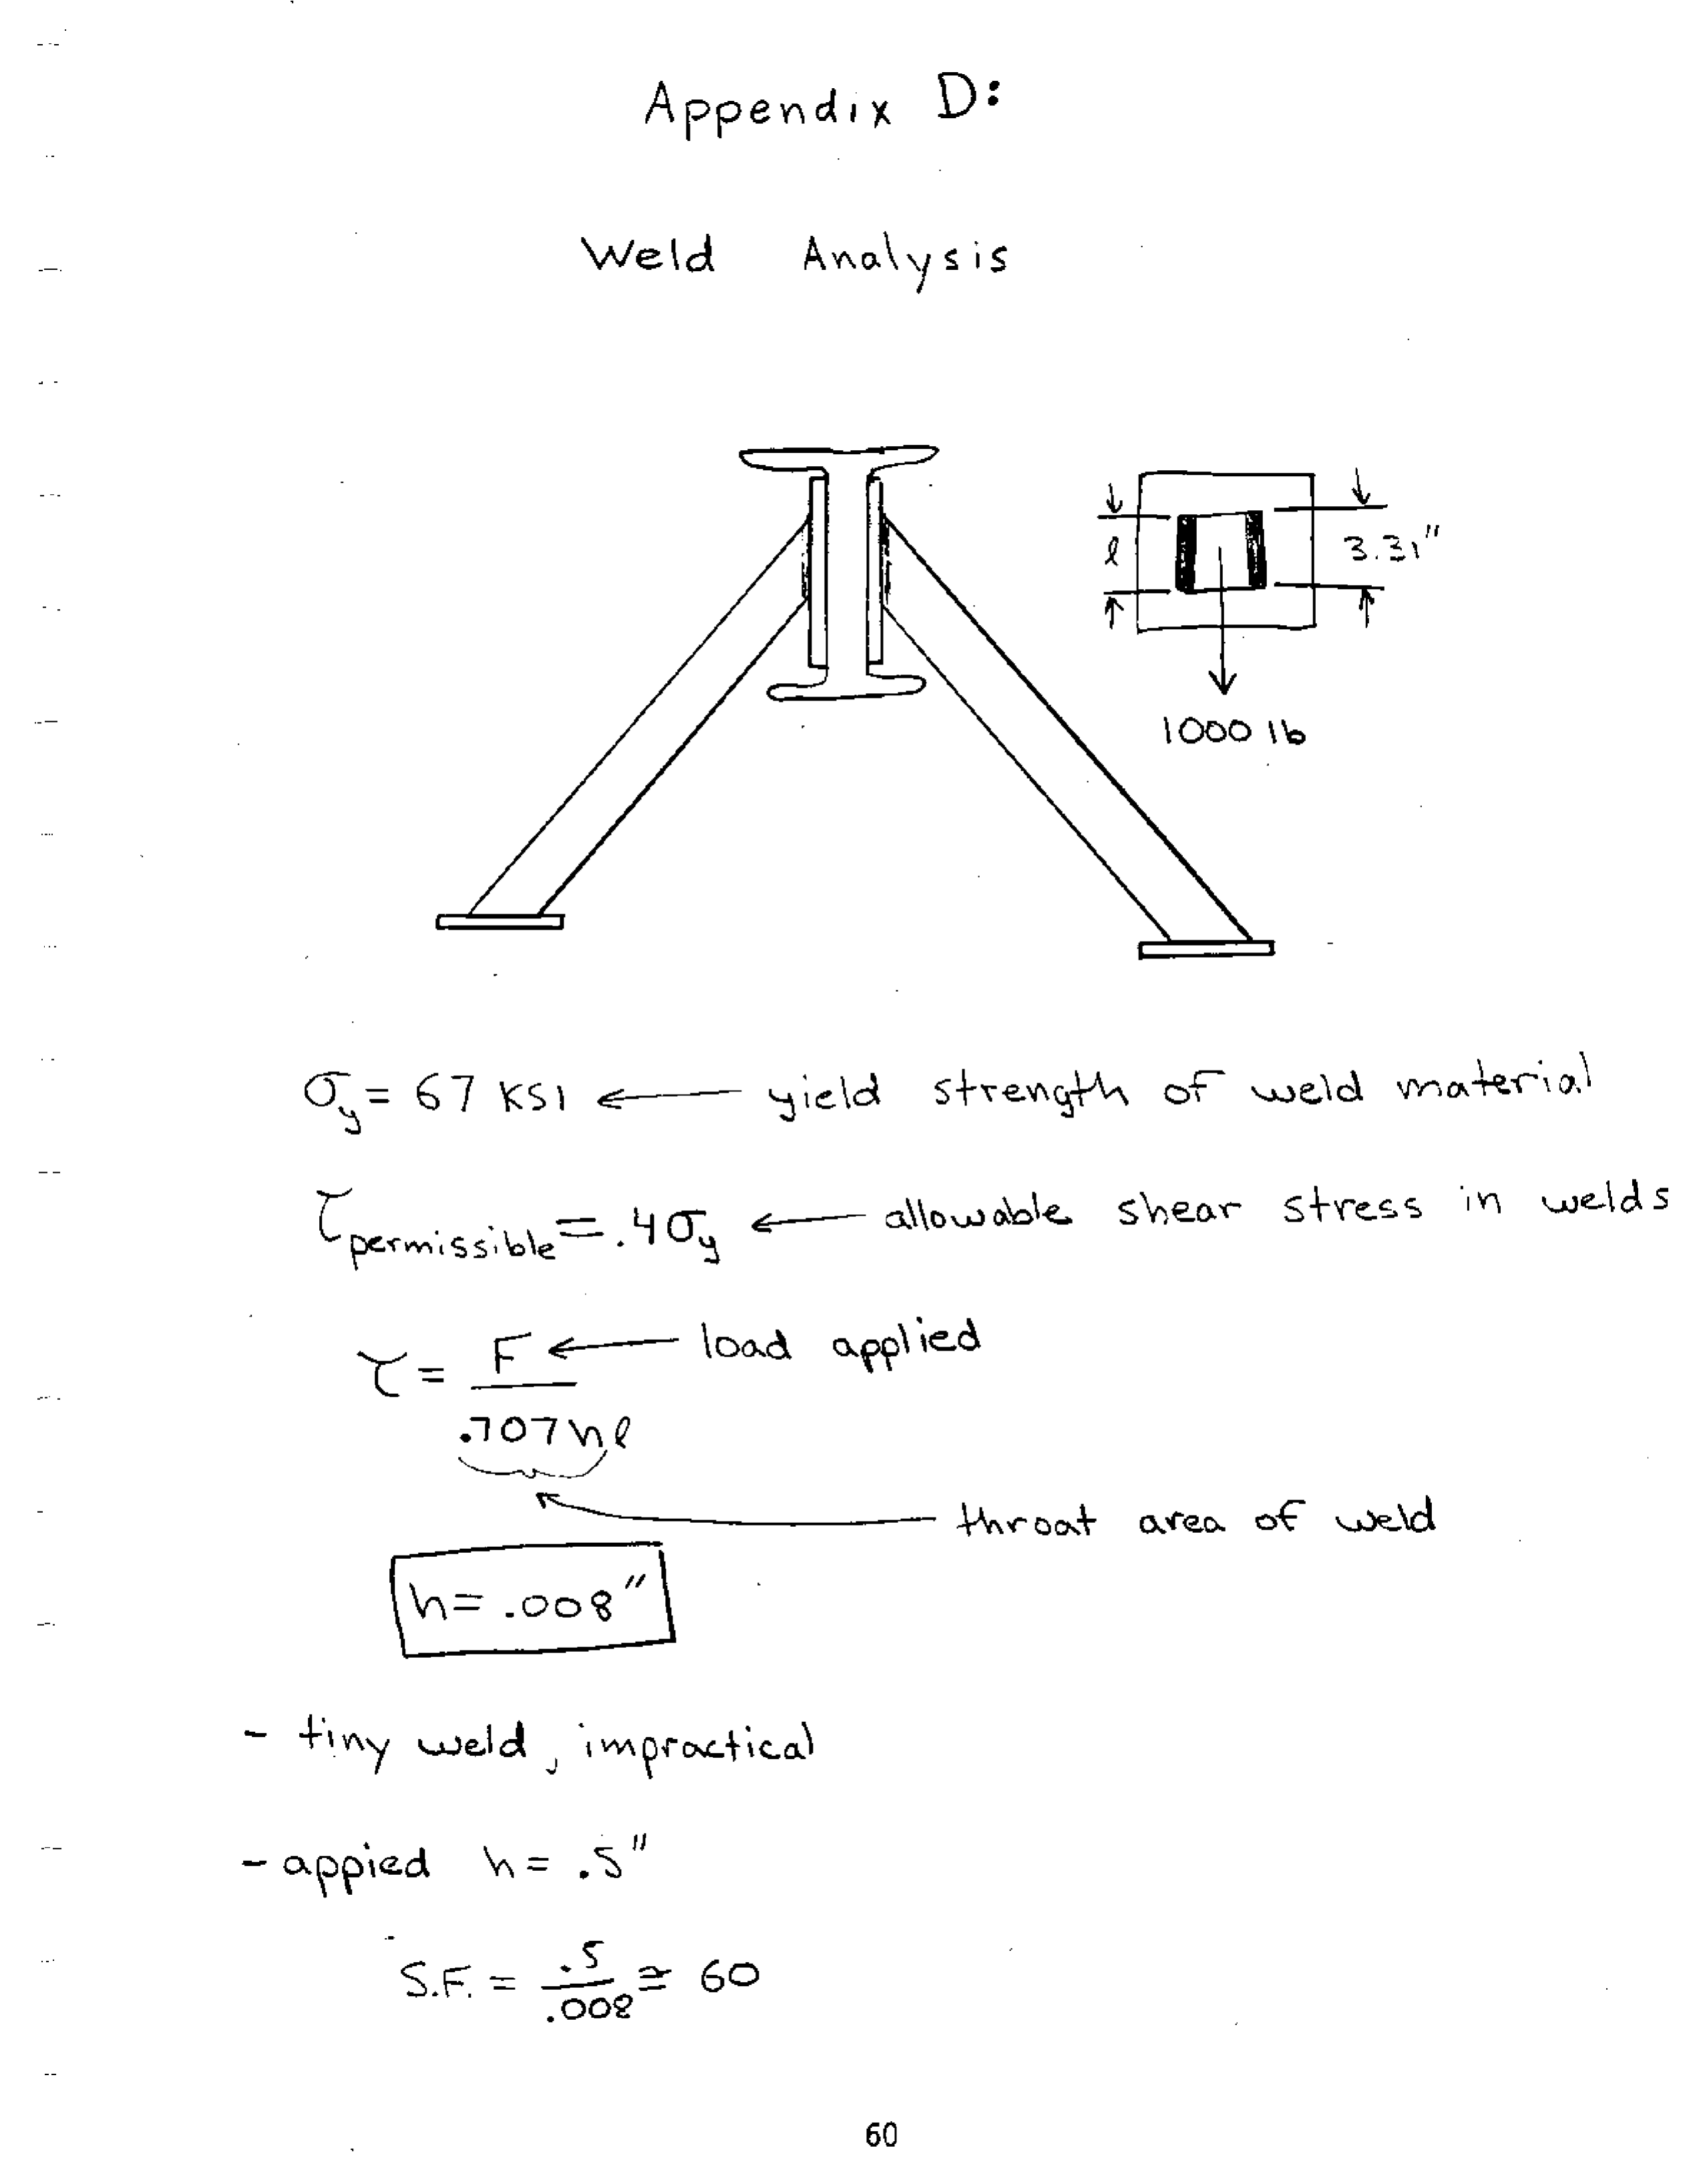 Appendix D:
Weld Analysis
l
3.31"
1000 lb
σy = 67 KSI ← yield strength of weld material
τpermissible = .4σy ← allowable shear stress in welds
τ = F ← load applied
.707hl
throat area of weld
h = .008"
- tiny weld, impractical
- appied h = .5"
S.F. = .5/.008 ≅ 60
60